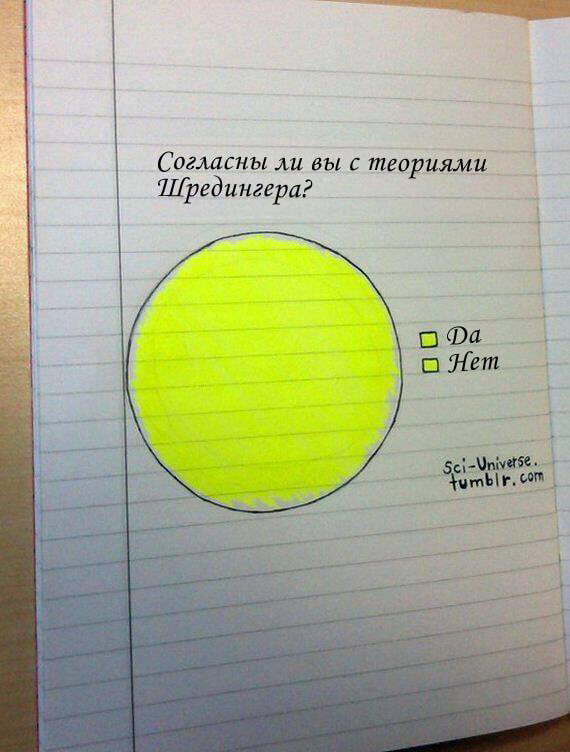 Согласны ли вы с теориями
Шредингера?
Да
Нет
Sci-Universe.
tumblr.com